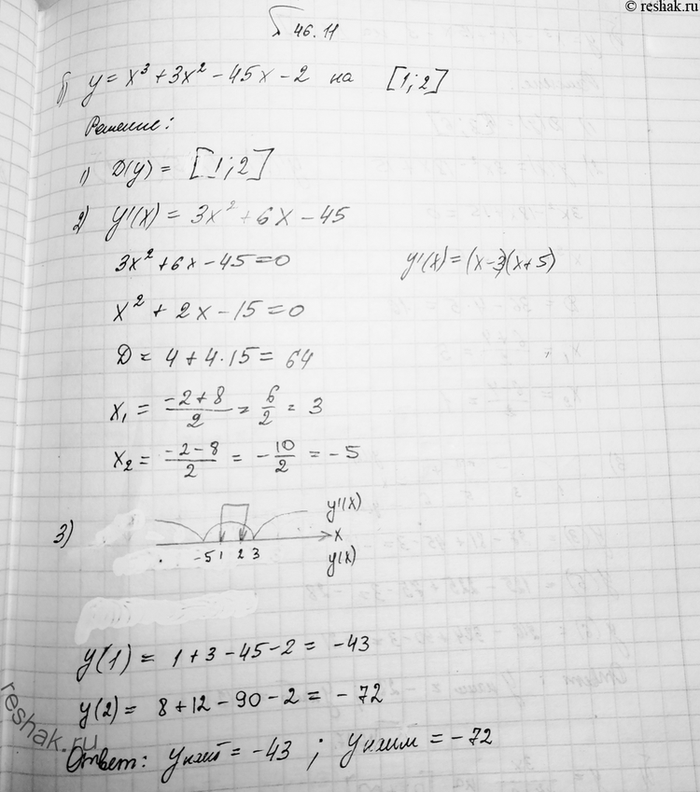 © reshak.ru
46.11
б) y = x³ + 3x² - 45x - 2 на [1; 2]
Решение:
1) D(y) = [1; 2]
2) y'(x) = 3x² + 6x - 45
3x² + 6x - 45 = 0
y'(x) = (x-3)(x+5)
x² + 2x - 15 = 0
D = 4 + 4·15 = 64
x₁ = (-2+8)/2 = 6/2 = 3
x₂ = (-2-8)/2 = -10/2 = -5
3) y'(x)
x
-5 1 2 3 y(x)
y(1) = 1 + 3 - 45 - 2 = -43
y(2) = 8 + 12 - 90 - 2 = -72
reshak.ru
Ответ: yнаиб = -43 ; yнаим = -72